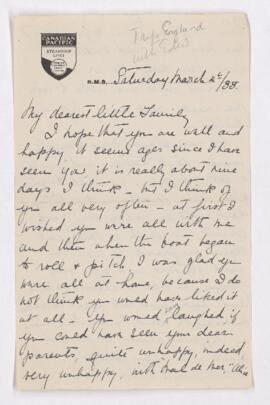 Trip England
with Edw
CANADIAN
PACIFIC
STEAMSHIP
LINES
R.M.S. Saturday March 2nd/33.
My dearest little Family
I hope that you are well and
happy, it seems ages since I have
seen you it is really about nine
days I think - but I think of
you all very often - at first I
wished you were all with me
and then when the boat began
to roll & pitch I was glad you
were all at home, because I do
not think you would have liked it
at all - you would laughed if
you could have seen your dear
parents, quite unhappy, indeed
very unhappy, with mal de Mer,